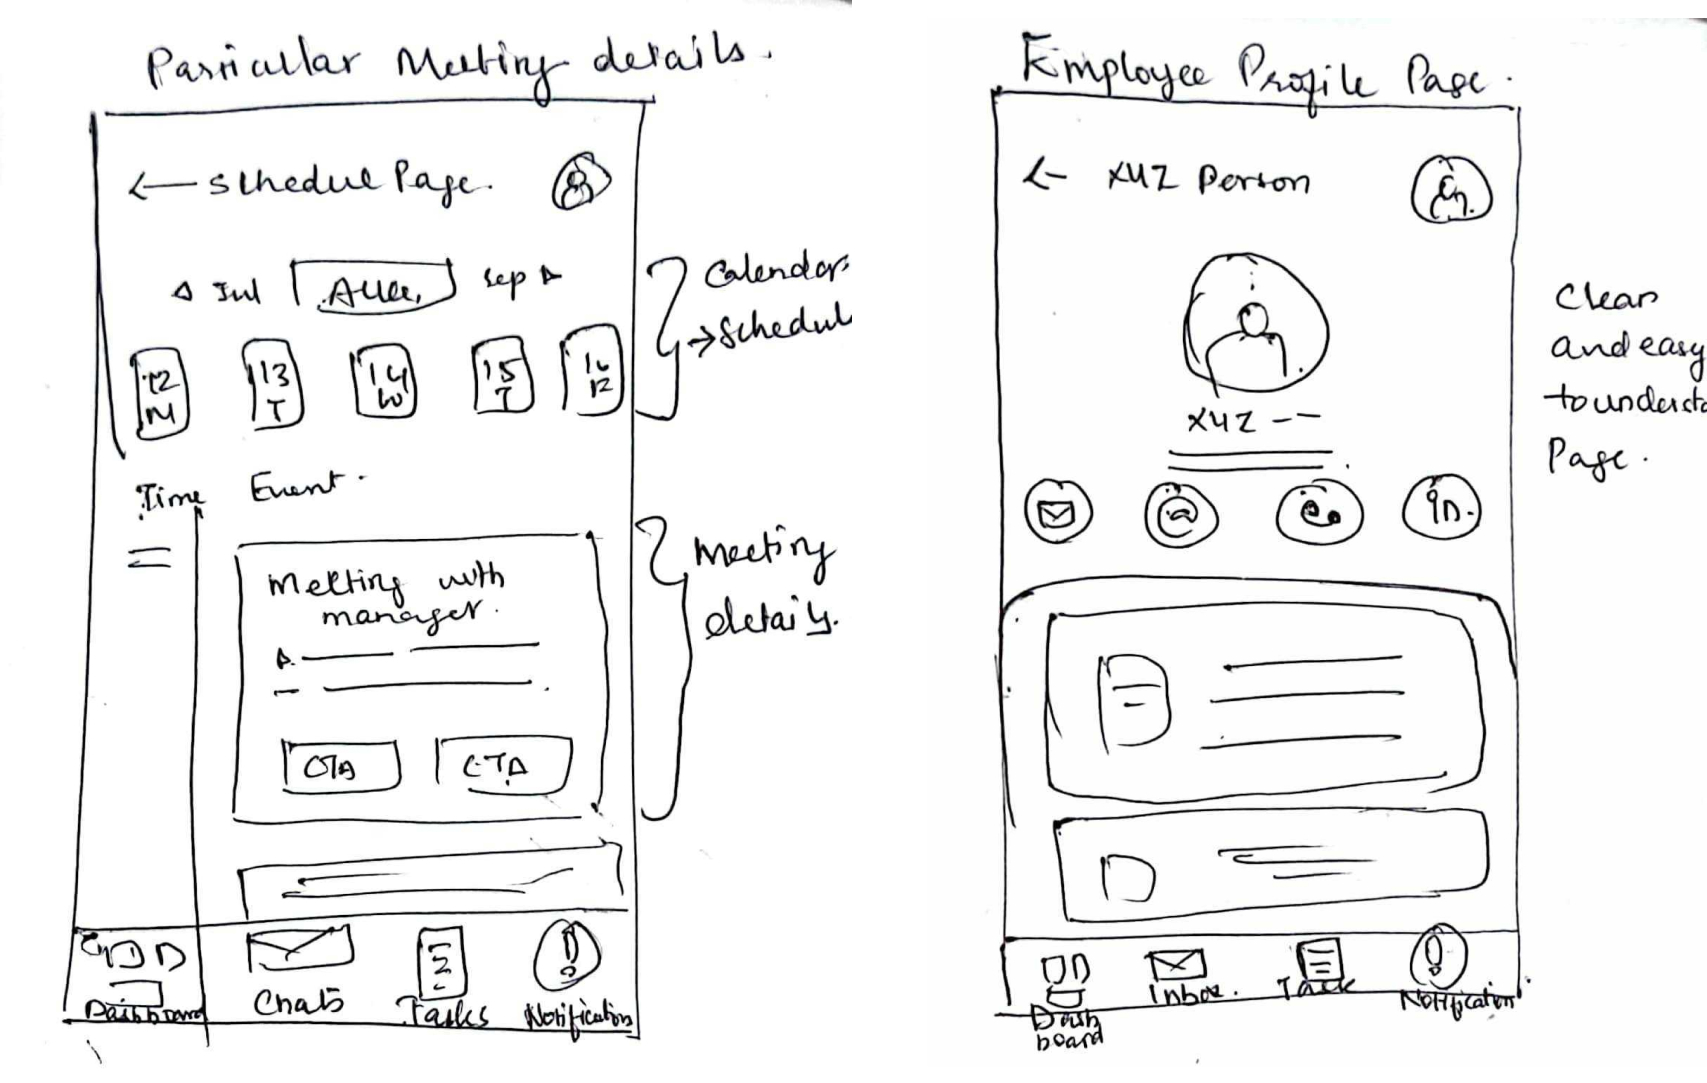 Particular Meeting details.
← Schedule Page.
Jul Aug. Sep
12 M 13 T 14 W 15 T 16
Calendar
→ Schedul
Time Event.
Meeting with
manager.
CTA CTA
Meeting
details.
Dashboard Chats Tasks Notification
Employee Profile Page.
← XYZ Person
XYZ --
in.
Clear
and easy
to understa
Page.
Dash
board
Inbox. Task Notification